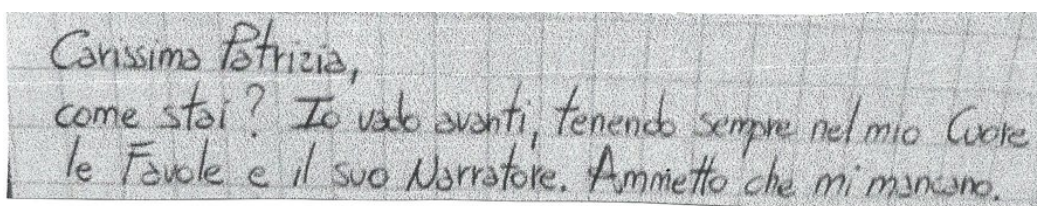 Carissima Patrizia,
come stai? Io vado avanti, tenendo sempre nel mio Cuore
le Favole e il suo Narratore. Ammetto che mi mancano.